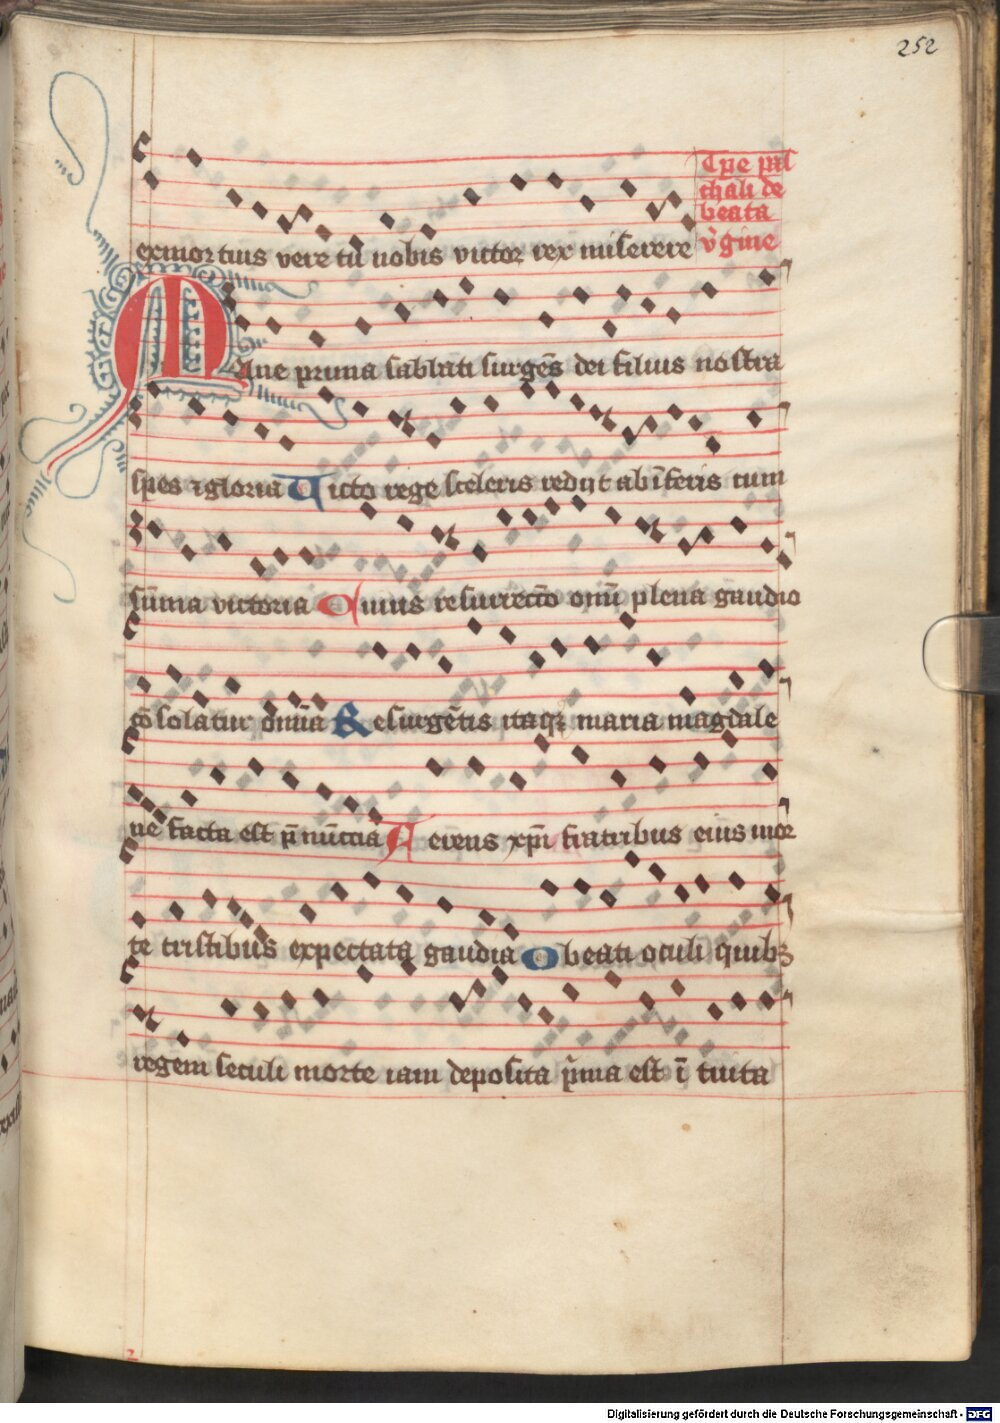 252
Tp̄e pas
chali de
beata
v̄gine
ex mortuis vere tu nobis victor rex miserere
Mane prima sabbati surgēs dei filius nostra
spes ⁊ gloria Victo rege sceleris redijt ab īferis cum
sūma victoria Cuius resurrectō om̄ī plena gaudio
cōsolatur om̄ia Resurgētis itaqꝫ maria magdale
ne facta est p̄nūccia Ferens xp̄i fratribus eius mor
te tristibus expectata gaudia O beati oculi quibꝫ
regem seculi morte iam deposita p̄ma est ī tuita
Digitalisierung gefördert durch die Deutsche Forschungsgemeinschaft - DFG